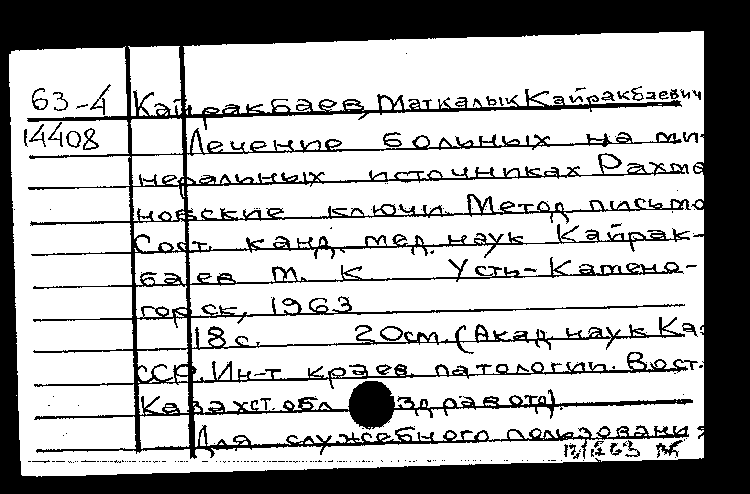 63-4 Кайракбаев, Маткалык Кайракбаевич
14408 Лечение больных на ми-
неральных источниках Рахма
новские ключи. Метод. письмо
Сост. канд. мед. наук Кайрак-
баев М. К Усть-Камено-
горск, 1963
18 с. 20 см. (Акад. наук Каз
ССР. Ин-т краев. патологии. Вост.
Казахст. обл здравотд).
Для служебного пользования